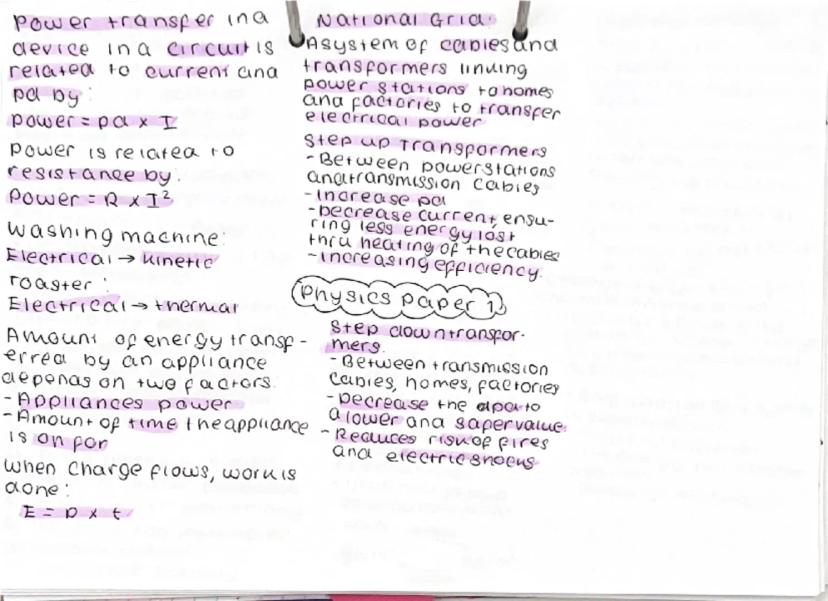 Power transfer in a
device in a circuit is
related to current and
pd by:
power = pd x I
Power is related to
resistance by:
Power = R x I²
Washing machine:
Electrical → kinetic
Toaster:
Electrical → thermal
Amount of energy transf-
erred by an appliance
depends on two factors.
- Appliances power
- Amount of time the appliance
is on for
When charge flows, work is
done:
E = P x t
National Grid:
A system of cables and
transformers linking
power stations to homes
and factories to transfer
electrical power
Step up Transformers
- Between power stations
and transmission cables
- Increase pd
- Decrease current, ensu-
ring less energy lost
thru heating of the cables
- Increasing efficiency.
Physics paper 1
Step down transfor-
mers.
- Between transmission
cables, homes, factories
- Decrease the pd to
a lower and safer value.
- Reduces risk of fires
and electric shocks